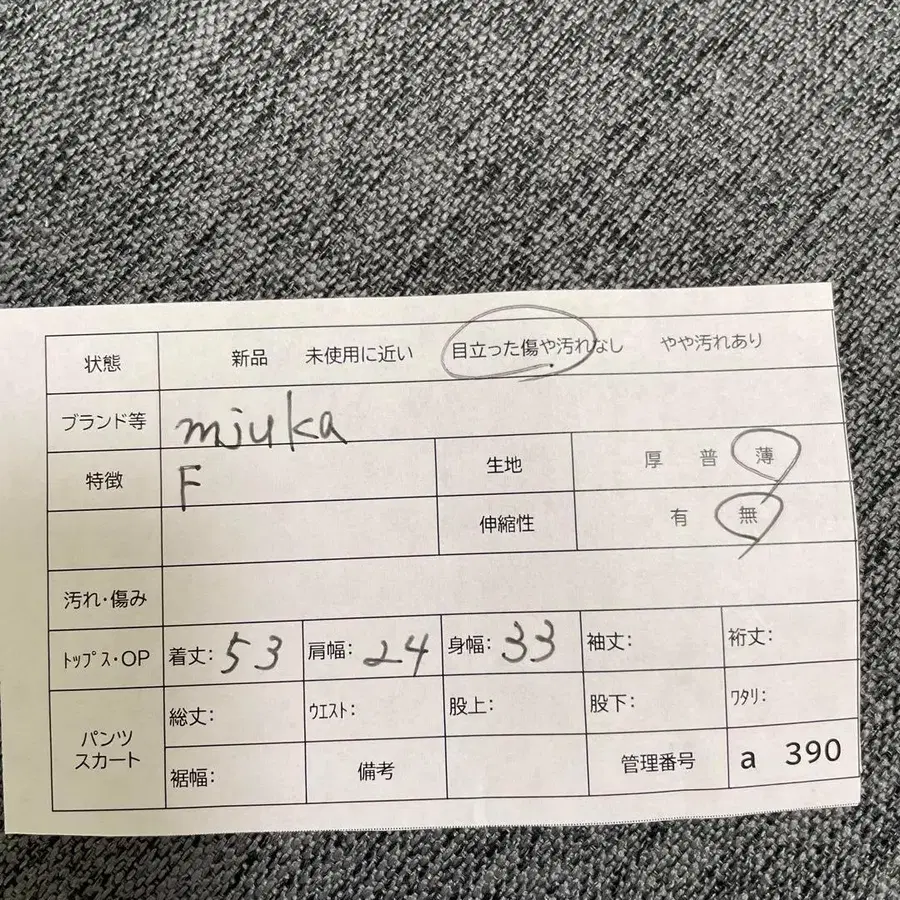 状態 新品 未使用に近い 目立った傷や汚れなし やや汚れあり
ブランド等 mjuka
特徴 F 生地 厚 普 薄
伸縮性 有 無
汚れ・傷み
ﾄｯﾌﾟｽ・OP 着丈: 53 肩幅: 24 身幅: 33 袖丈: 裄丈:
パンツ
スカート
総丈: ｳｴｽﾄ: 股上: 股下: ﾜﾀﾘ:
裾幅: 備考 管理番号 a 390